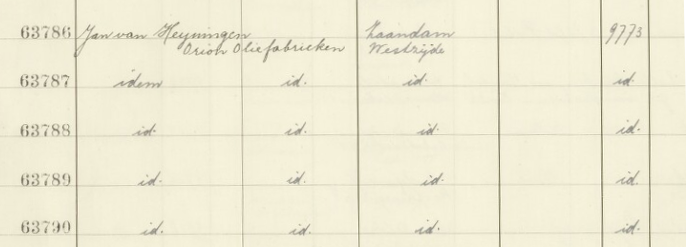 63786 Jan van Heyningen Zaandam 9773
Orion Oliefabrieken Westzijde
63787 idem id. id. id.
63788 id. id. id. id.
63789 id. id. id. id.
63790 id. id. id. id.